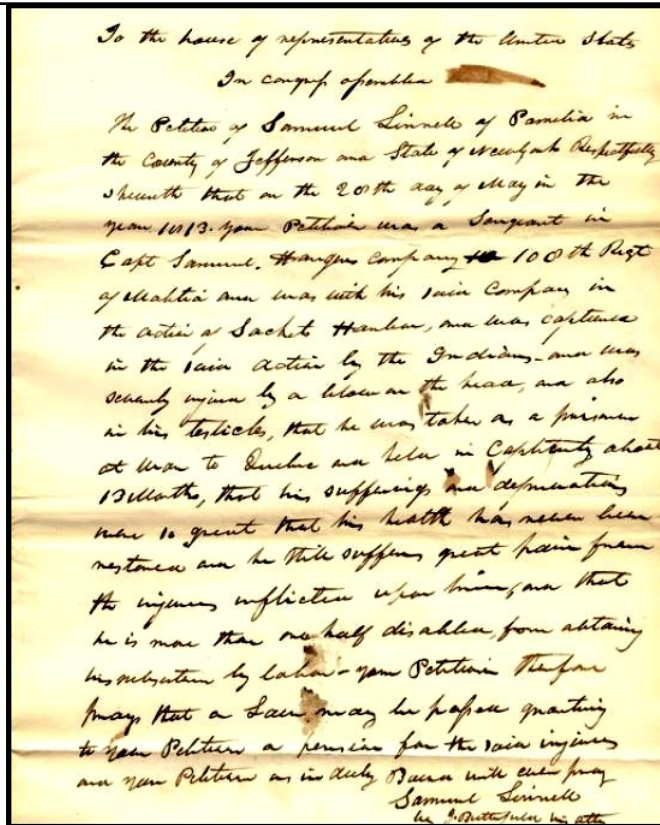 To the house of representatives of the United States
In congress assembled
The Petition of Samuel Linnell of Pamelia in
the County of Jefferson and State of Newyork Respectfully
sheweth that on the 28th day of May in the
year 1813. your Petitioner was a Sargeant in
Capt Samuel. company 108th Regt
of Malitia and was with his said Company in
the action of Sackets Harbor, and was captured
in the said action by the Indians - and was
severely injured by a blow on the head, and also
in his testicles, that he was taken as a prisoner
of war to Quebec and held in Captivity about
13 Months, that his sufferings and deprivations
were so great that his health has never been
restored and he still suffers great pain from
the injuries inflicted upon him, and that
he is more than one half disabled from obtaining
his subsistence by labor - your Petitioner therefore
prays that a Law may be passed granting
to your Petitioner a pension for the said injuries
and your Petitioner as in duty Bound will ever pray
Samuel Linnell
by his atty